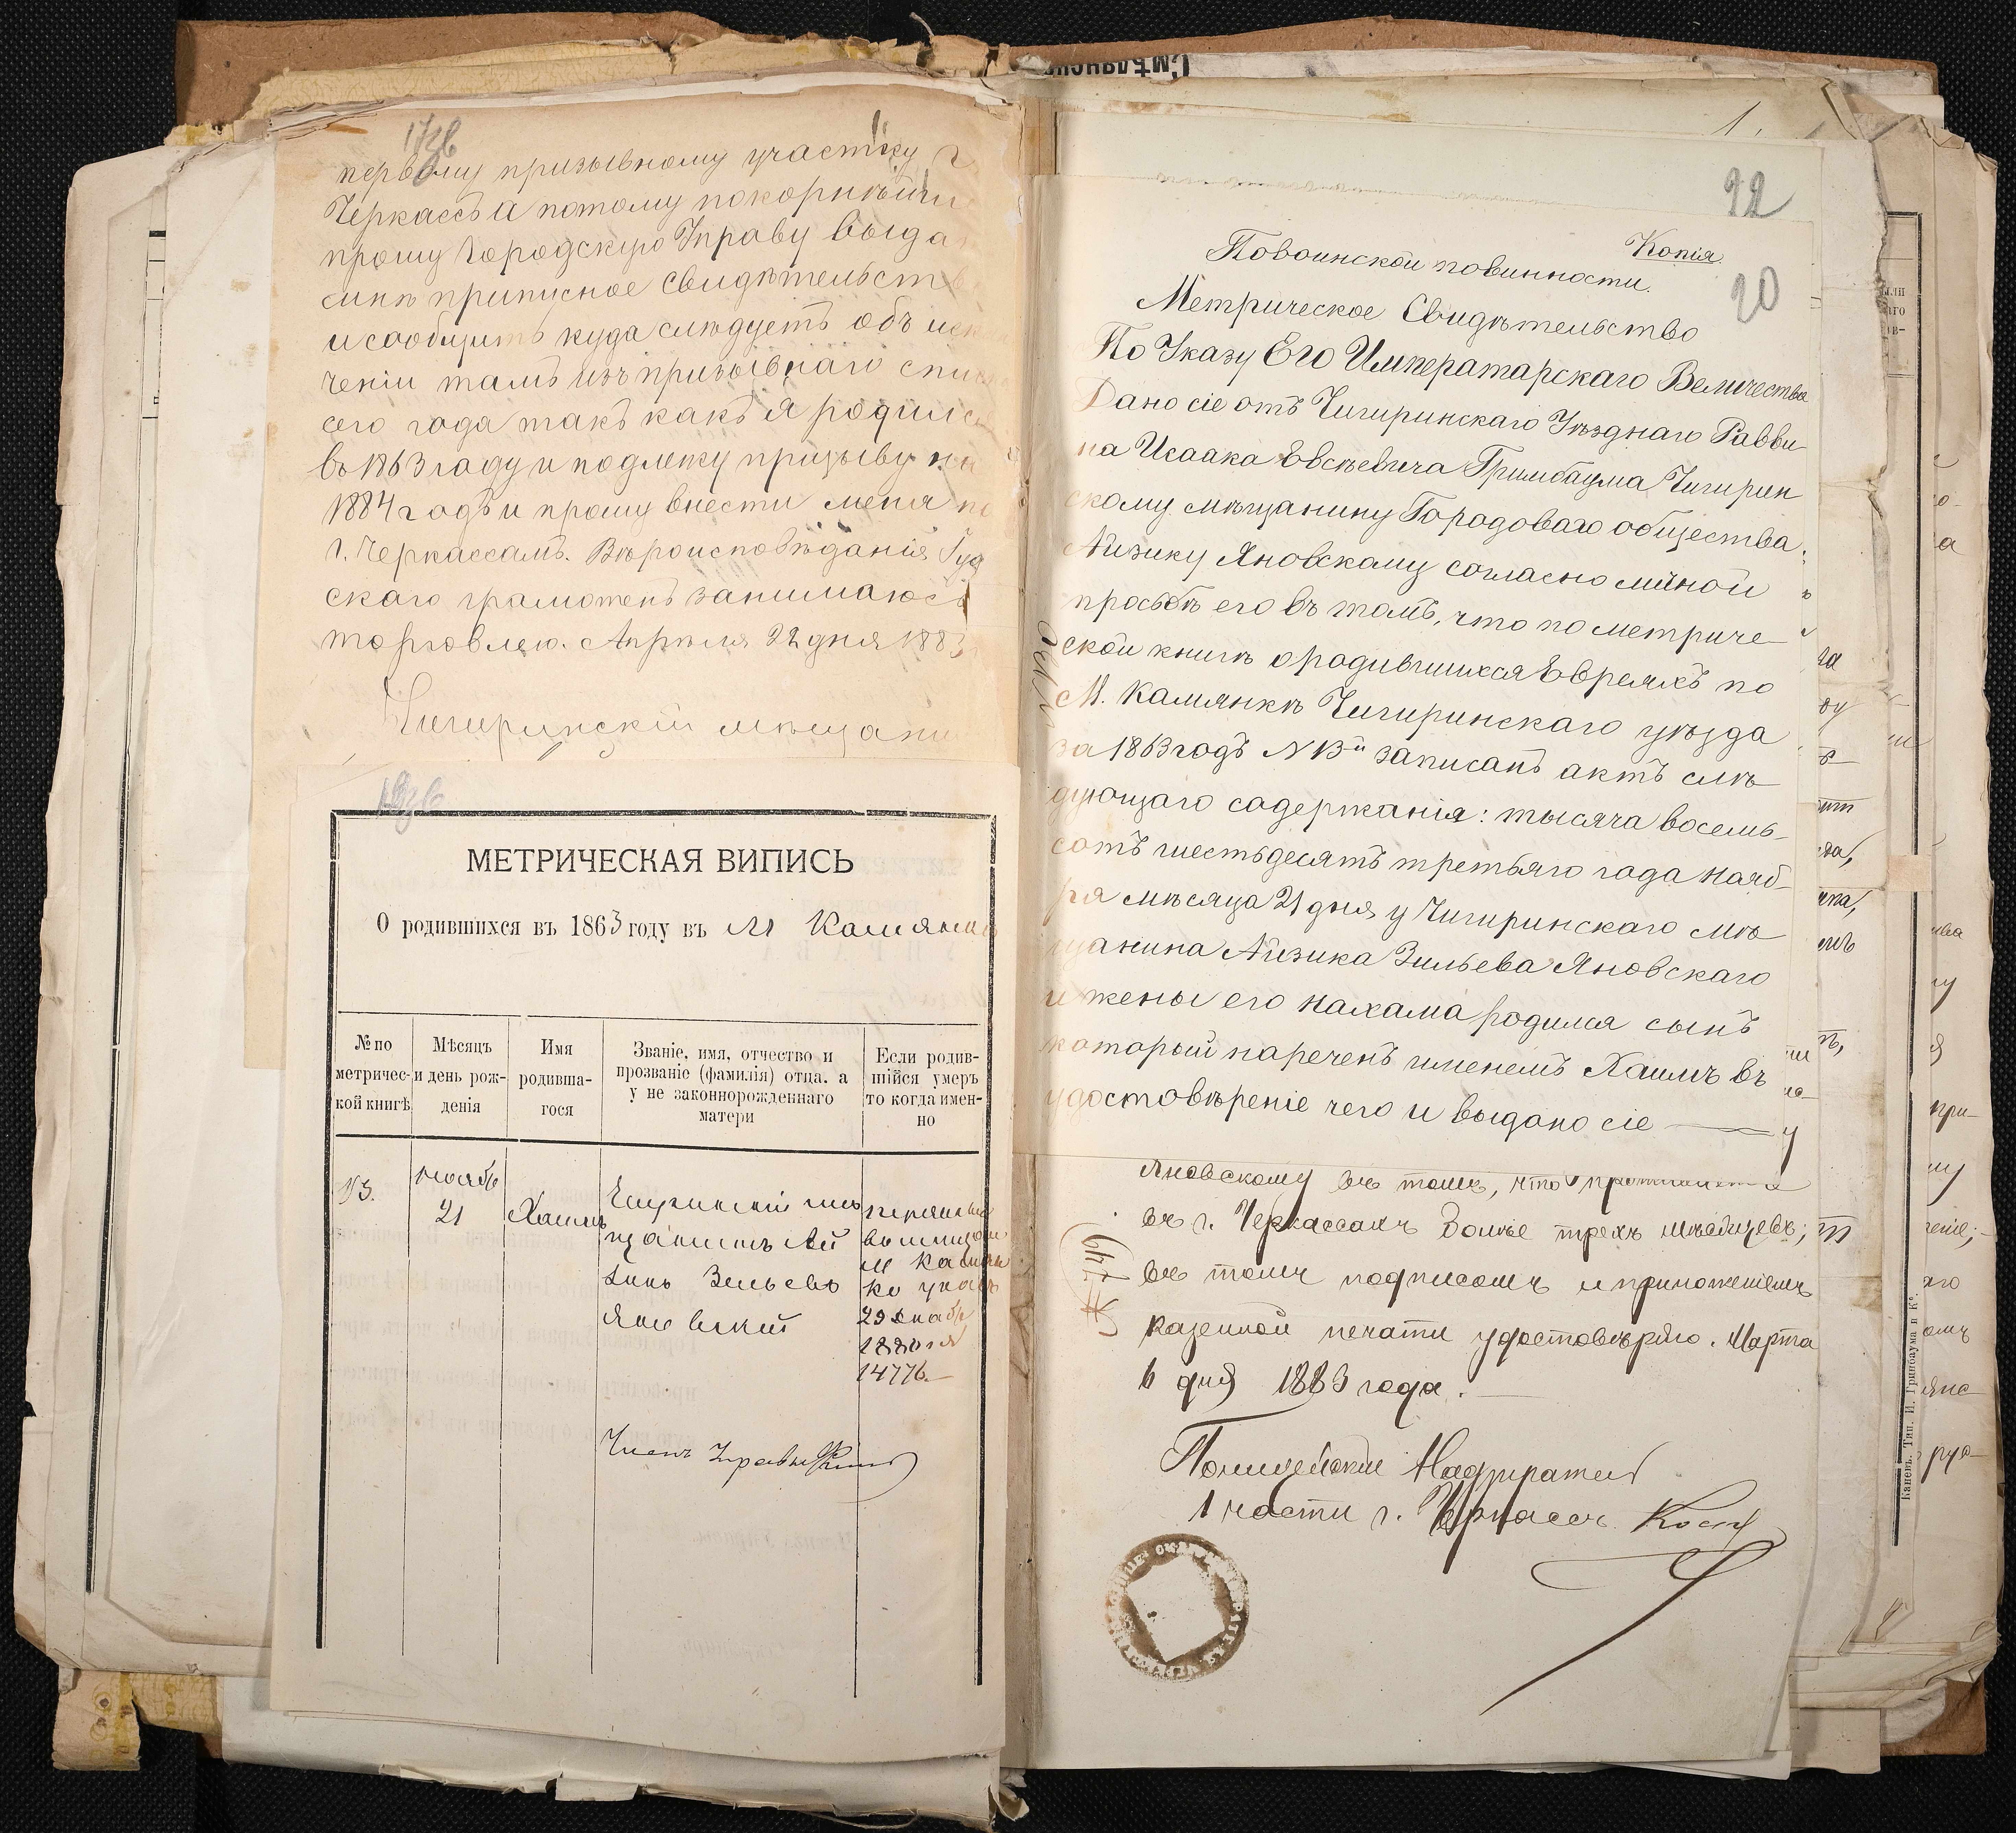 первому призывному участку г
Черкассъ а потому покорнѣйши
прошу Городскую Управу выда
мнѣ приписное свидѣтельств
и сообщить куда слѣдуетъ объ искл
ченіи тамъ изъ призывнаго спис
сего года такъ какъ я родилс
въ 1863 году и подлежу призыву на
1884 годъ и прошу внести меня по
г. Черкассамъ. Вѣроисповѣданія Іуд
скаго грамотенъ занимаюсь
торговлею. Апрѣля 22 дня 1883
Чигиринскій мѣщани
МЕТРИЧЕСКАЯ ВИПИСЬ
О родившихся въ 1863 году въ М Камянкѣ
№ по метрической книгѣ
Мѣсяцъ и день рожденія
Имя родившагося
Званіе, имя, отчество и
прозваніе (фамилія) отца, а
у не законнорожденнаго
матери
Если родив-
шійся умеръ
то когда имен-
но
13.
Ноябр
21
Хаимъ
мѣ
щанинъ Ай
зикъ Зельевъ
Яновскій
М Камян
ка указ
29 Декабр
1880
14776.
Членъ Управы
1.
22
Копія
20
По воинской повинности.
Метрическое Свидѣтельство
По Указу Его Императарскаго Величества
Дано сіе отъ Чигиринскаго Уѣзднаго Равви-
на Исаака Евсѣевича Гримбаума Чигирин
скому мѣщанину Городоваго общества
Айзику Яновскому согласно личной
просьбѣ его въ томъ, что по метриче
ской книгѣ о родившихся Евреяхъ по
М. Камянкѣ Чигиринскаго уѣзда
за 1863 годъ N 13й записанъ актъ слѣ
дующаго содержанія: тысяча восемь-
сотъ шестьдесятъ третьяго года Нояб-
ря мѣсяца 21 дня у Чигиринскаго мѣ
щанина Айзика Зильева Яновскаго
и жены его Нахама родился сынъ
который нареченъ именемъ Хаимъ въ
удостовѣреніе чего и выдано сіе —
Яновскому въ томъ, что проживаетъ
въ г. Черкассахъ болѣе трехъ мѣсяцевъ;
въ томъ подписомъ и приложеніемъ
казенной печати удостовѣряю. Марта
6 дня 1883 года.
Полицейскій Надзиратель
1 части г. Черкассъ
Каневъ. Тип. И. Гринбаума и Ко.